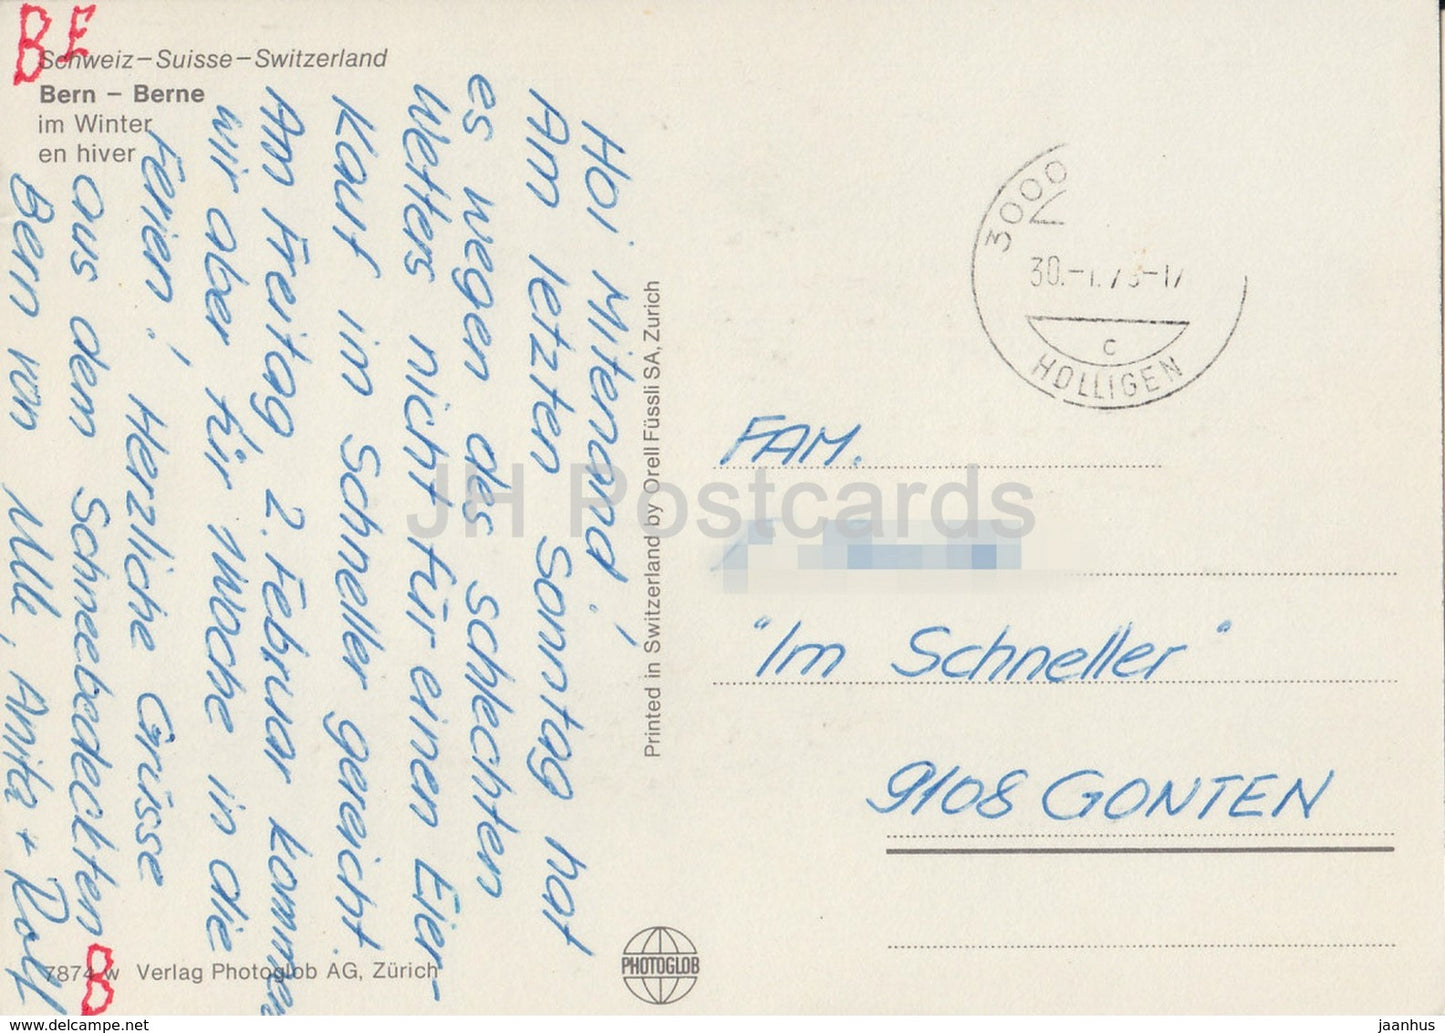 BE
Schweiz–Suisse–Switzerland
Bern – Berne
im Winter
en hiver
Hoi Mitenand!
Am letzten Sonntag hat
es wegen des schlechten
Wetters nicht für einen Eier-
kauf im Schneller gereicht.
Am Freitag 2. Februar kommen
wir aber für 1 Woche in die
Ferien! Herzliche Grüsse
aus dem Schneebedeckten
Bern von Ulli, Anita + Rolf
B
7874 w Verlag Photoglob AG, Zürich
Printed in Switzerland by Orell Füssli SA, Zurich
PHOTOGLOB
3000
30.-1.73-17
C
HOLLIGEN
FAM.
"Im Schneller"
9108 GONTEN
JH Postcards
https://www.delcampe.net
jaanhus